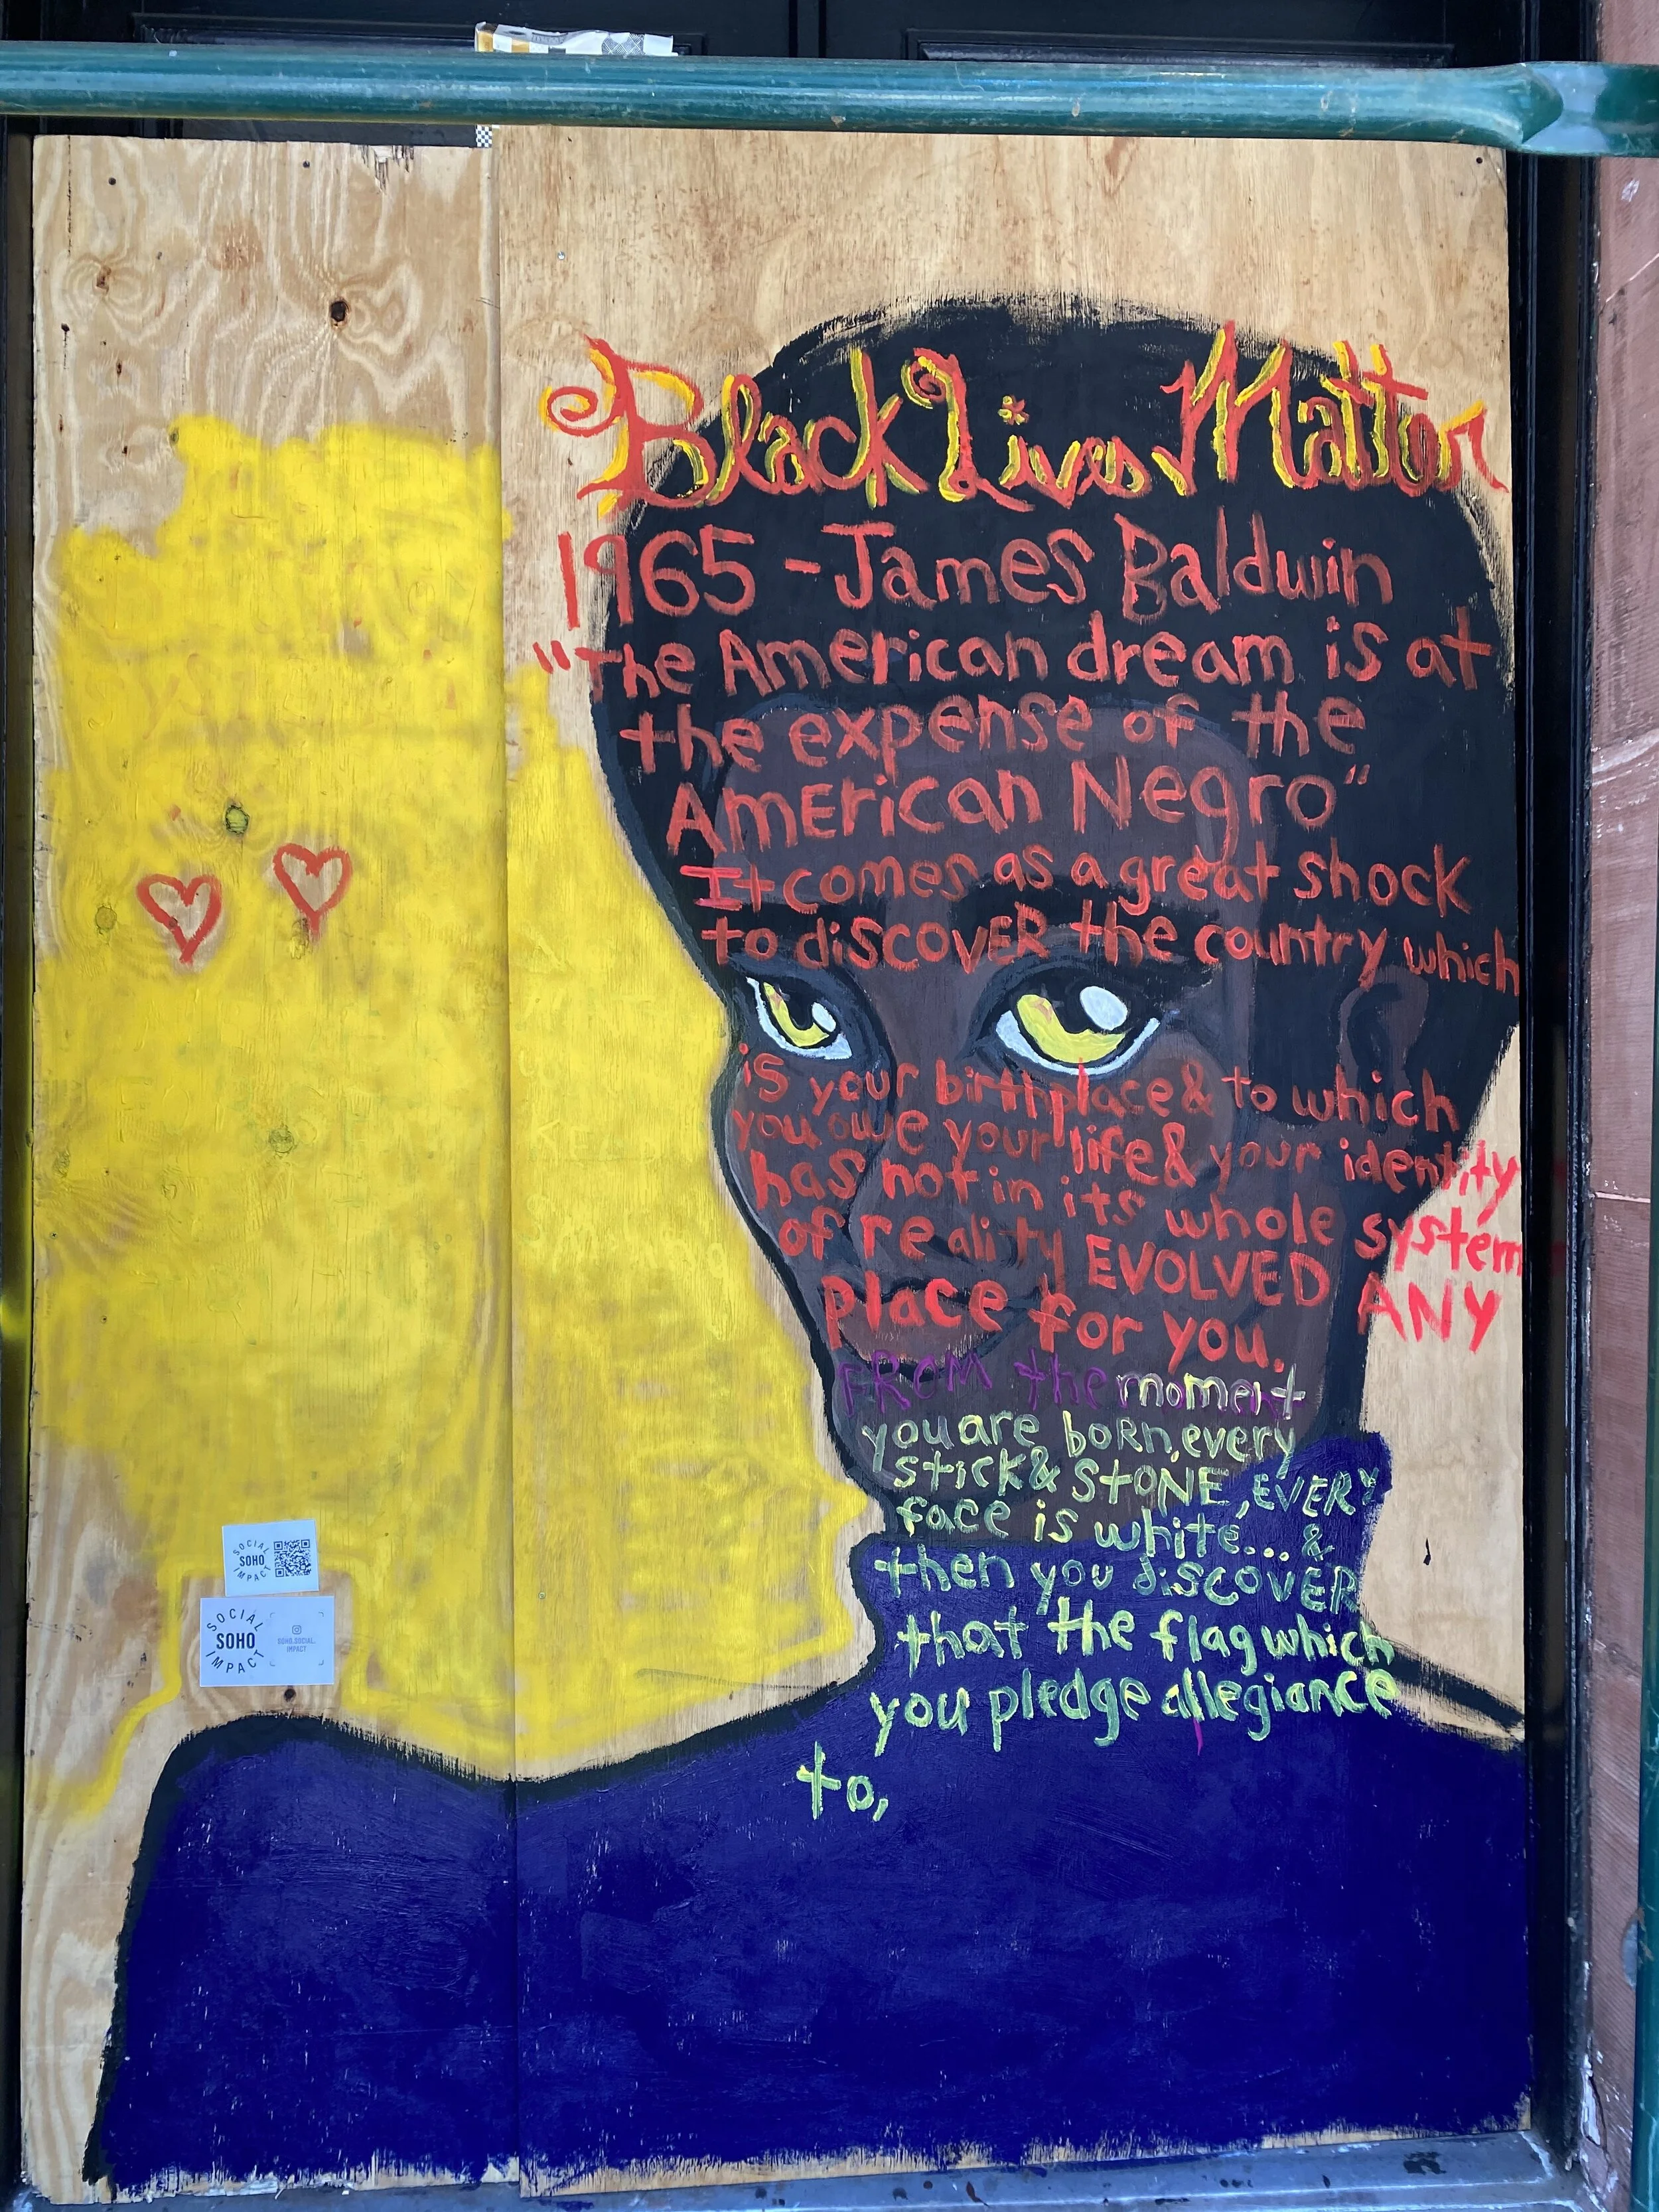 Black Lives Matter
1965 - James Baldwin
"The American dream is at
the expense of the
AmErican Negro"
It comes as a great shock
to discovER the country which
is your birthplace & to which
you owe your life & your identity
has not in its whole system
of reality EVOLVED ANY
place for you.
FROM the moment
you are boRn, every
stick & StONE, EVERY
face is white... &
then you discovER
that the flag which
you pledge allegiance
to,
SOCIAL
SOHO
IMPACT
SOCIAL
SOHO
IMPACT
SOHO.SOCIAL.
IMPACT